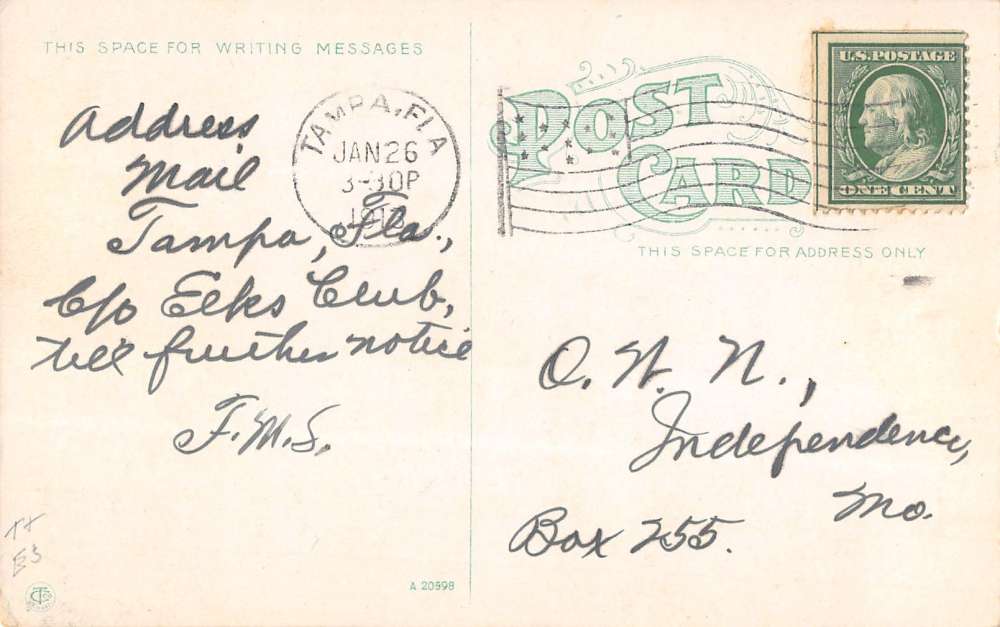 THIS SPACE FOR WRITING MESSAGES
Address
Mail
Tampa, Fla.,
c/o Elks Club,
till further notice
F.M.S.
A 20598
TAMPA, FLA
JAN 26
3-30P
POST
CARD
THIS SPACE FOR ADDRESS ONLY
U.S. POSTAGE
ONE CENT
O. W. N.,
Independence,
Mo.
Box 255.